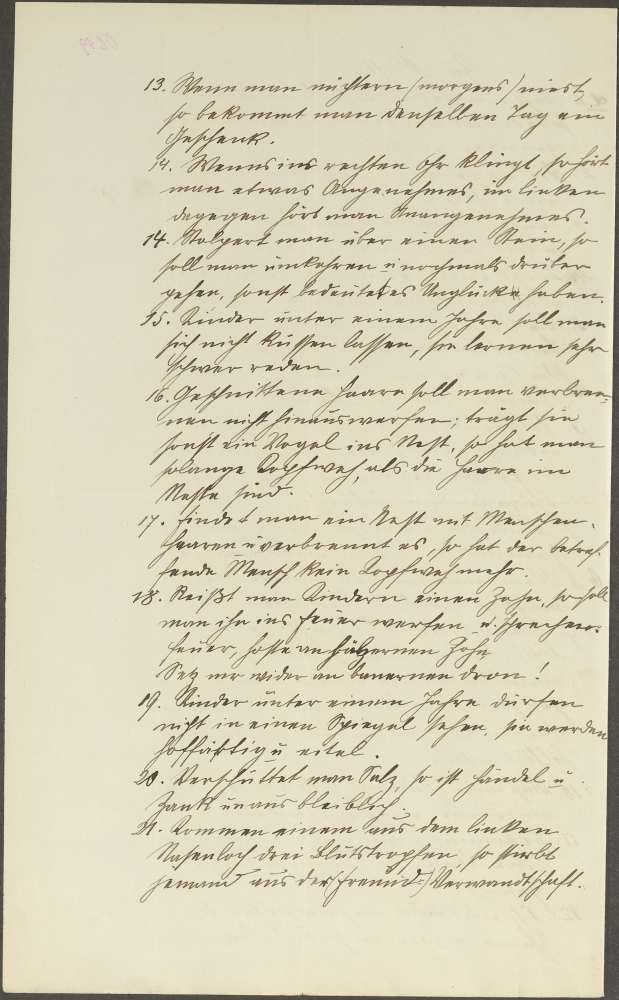 13. Wenn man nüchtern (morgens) niest,
so bekommt man denselben Tag ein
Geschenk.
14. Wenns ins rechten Ohr klingt, so hört
man etwas Angenehmes, im linken
dagegen hört man Unangenehmes.
14. Stolpert man über einen Stein, so
soll man umkehren u nochmals drüber
gehen, sonst bedeutet es Unglück haben.
15. Kinder unter einem Jahre soll man
sich nicht küssen lassen, sie lernen sehr
schwer reden.
16. Geschnittene Haare soll man verbren=
nen nicht hinauswerfen; trägt sie
sonst ein Vogel ins Nest, so hat man
solange Kopfweh, als die Haare im
Neste sind.
17. Findet man ein Nest mit Menschen-
haaren u verbrennt es, so hat der betref-
fende Mensch kein Kopfweh mehr.
18. Reißt man Kindern einen Zahn, so soll
man ihn ins Feuer werfen u. sprechen:
Feuer, hoste an hälzernen Zohn
Setz mer wider an banernen dron!
19. Kinder unter einem Jahre dürfen
nicht in einen Spiegel sehen, sie werden
hoffärtig u eitel.
20. Verschüttet man Salz, so ist Händel u
Zank unausbleiblich.
21. Kommen einem aus dem linken
Nasenloch drei Blutstropfen, so stirbt
jemand aus der (Freund=) Verwandtschaft.